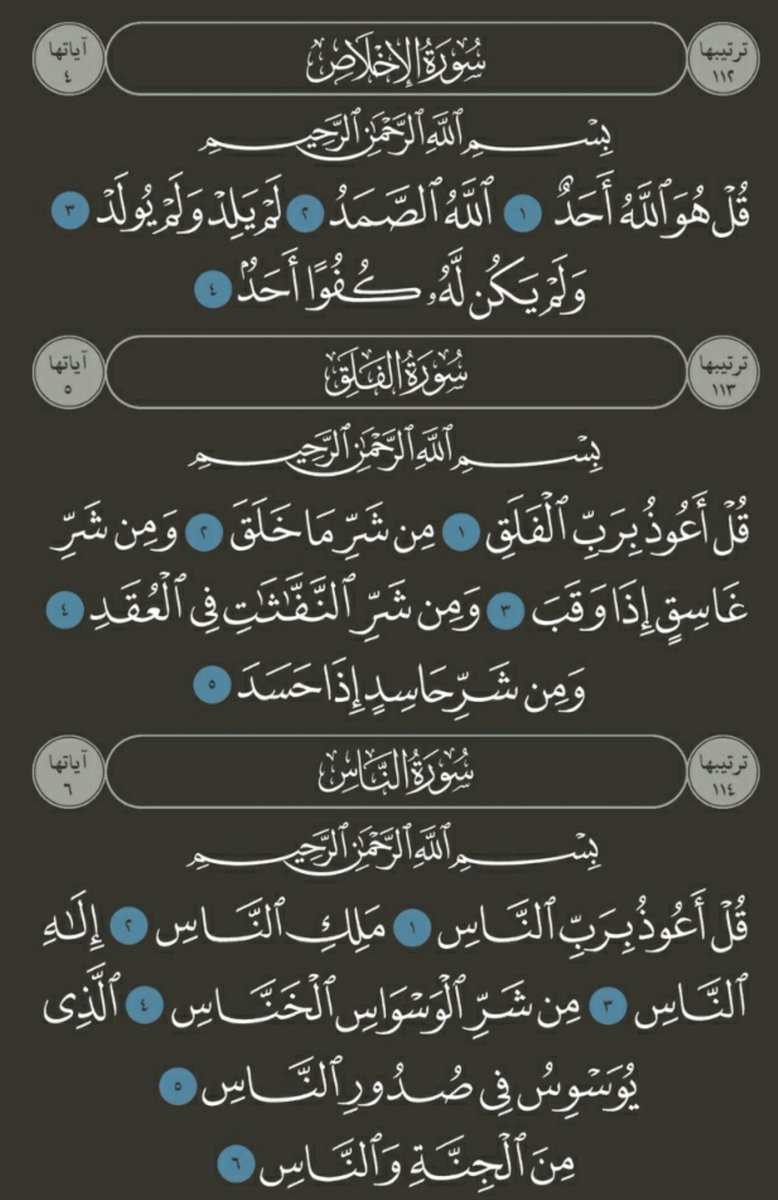 ترتيبها ١١٢ سُورَةُ الإِخْلَاصِ آياتها ٤
بِسْمِ ٱللَّهِ ٱلرَّحْمَٰنِ ٱلرَّحِيمِ
قُلْ هُوَ ٱللَّهُ أَحَدٌ ١ ٱللَّهُ ٱلصَّمَدُ ٢ لَمْ يَلِدْ وَلَمْ يُولَدْ ٣
وَلَمْ يَكُن لَّهُۥ كُفُوًا أَحَدٌۢ ٤
ترتيبها ١١٣ سُورَةُ الفَلَقِ آياتها ٥
بِسْمِ ٱللَّهِ ٱلرَّحْمَٰنِ ٱلرَّحِيمِ
قُلْ أَعُوذُ بِرَبِّ ٱلْفَلَقِ ١ مِن شَرِّ مَا خَلَقَ ٢ وَمِن شَرِّ
غَاسِقٍ إِذَا وَقَبَ ٣ وَمِن شَرِّ ٱلنَّفَّٰثَٰتِ فِى ٱلْعُقَدِ ٤
وَمِن شَرِّ حَاسِدٍ إِذَا حَسَدَ ٥
ترتيبها ١١٤ سُورَةُ النَّاسِ آياتها ٦
بِسْمِ ٱللَّهِ ٱلرَّحْمَٰنِ ٱلرَّحِيمِ
قُلْ أَعُوذُ بِرَبِّ ٱلنَّاسِ ١ مَلِكِ ٱلنَّاسِ ٢ إِلَٰهِ
ٱلنَّاسِ ٣ مِن شَرِّ ٱلْوَسْوَاسِ ٱلْخَنَّاسِ ٤ ٱلَّذِى
يُوَسْوِسُ فِى صُدُورِ ٱلنَّاسِ ٥
مِنَ ٱلْجِنَّةِ وَٱلنَّاسِ ٦